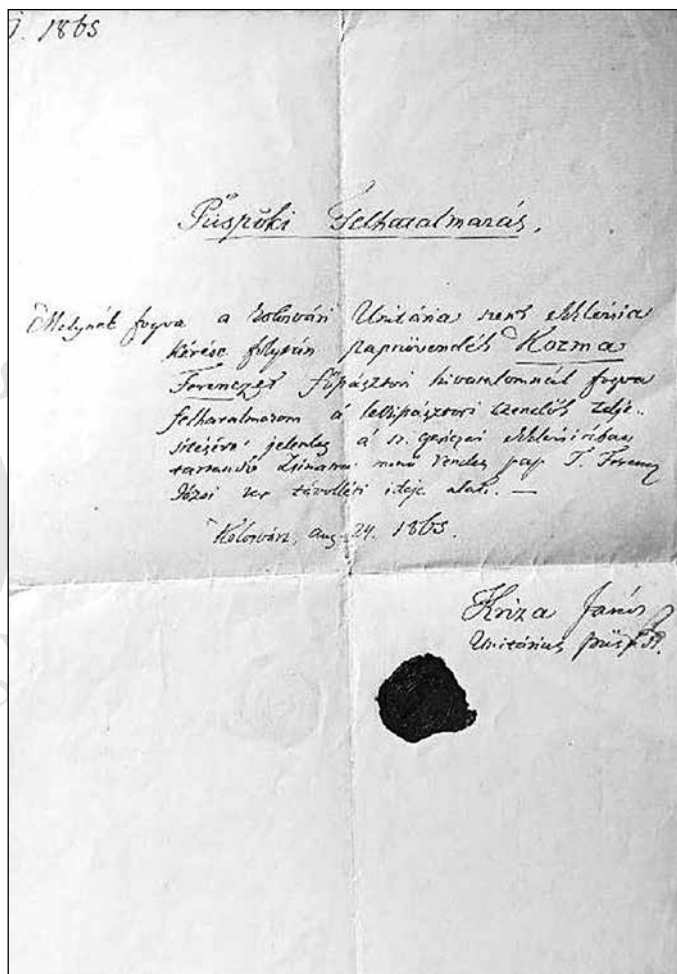 1865
Püspöki Felhatalmazás.
Melynél fogva a kolosvári Unitária szent ekklésia
kérése folytán papnövendék Kozma
Ferenczet főpásztori hivatalomnál fogva
felhatalmazom a lelkipásztori teendők telje-
sitésére jelenleg a ekklésiában
tartandó Zsinatra menő rendes pap T. Ferencz
Józsi távolléti ideje alatt. —
Kolosvárt, aug. 24. 1865.
Kriza János
Unitárius püspök